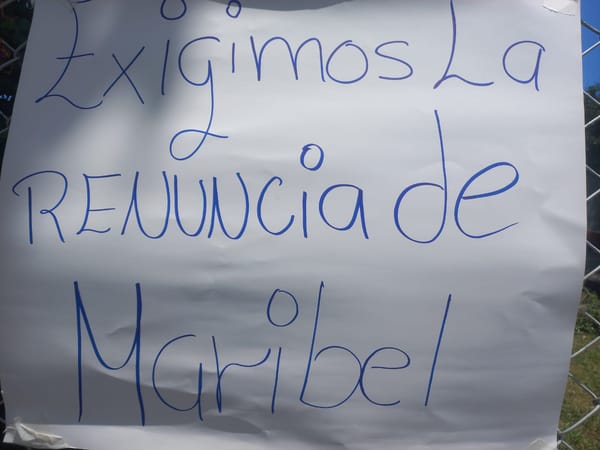 Exigimos La
RENUNCia de
Maribel